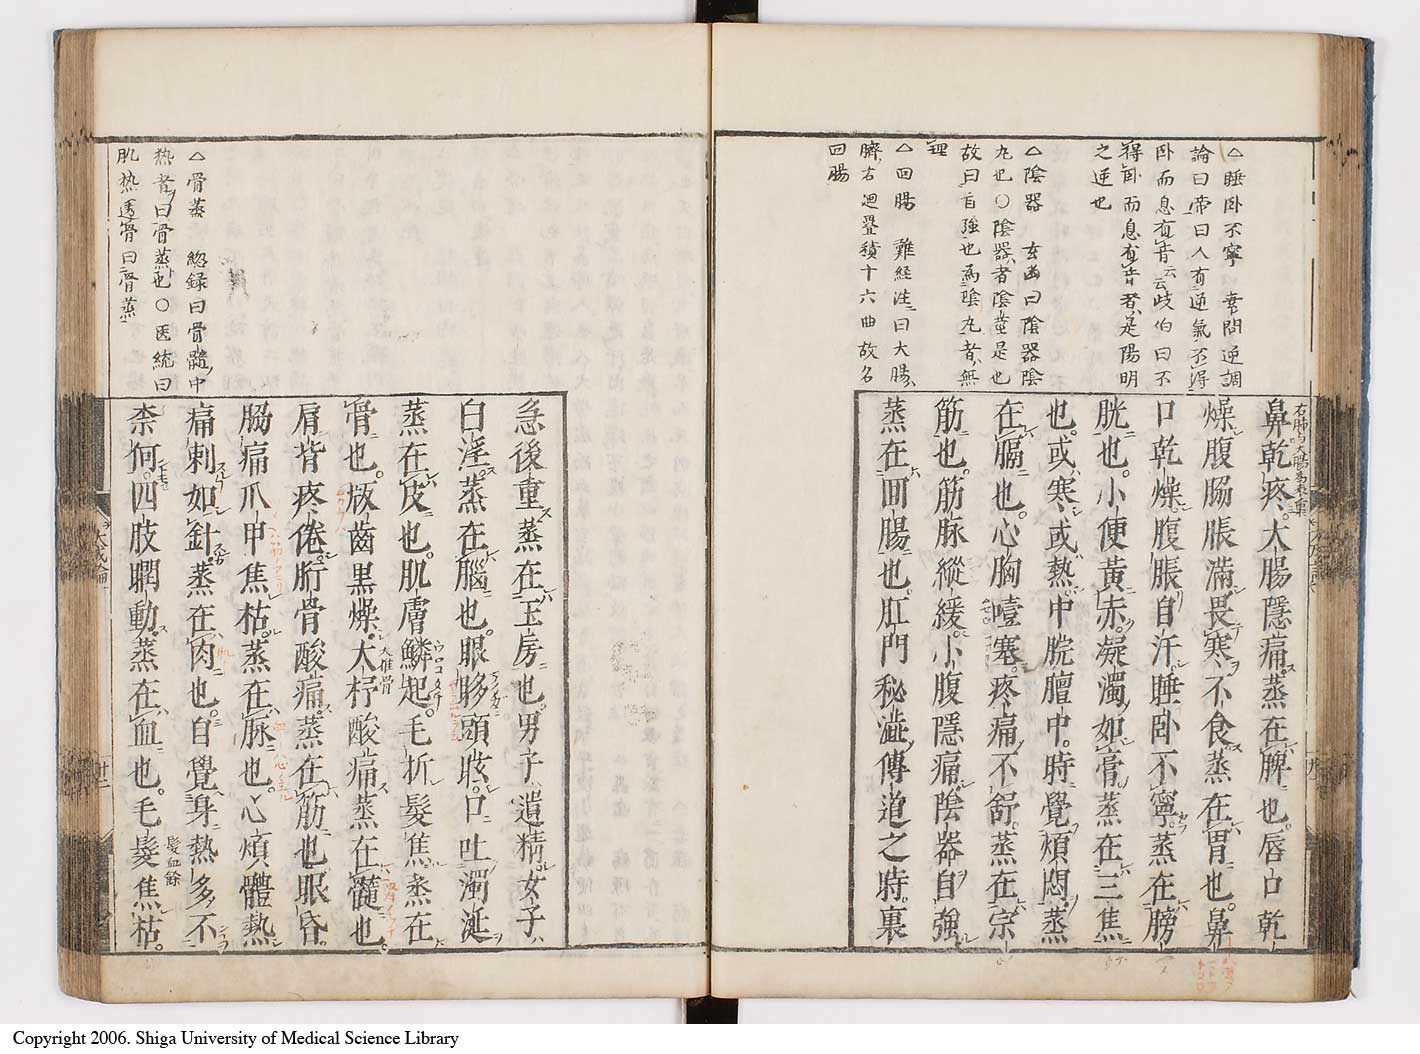 △睡卧不寧　素問逆調
論曰帝曰人有逆氣不得
卧而息有音云云岐伯曰不
得卧而息有音者是陽明
之逆也
△陰器　玄函曰陰器陰
丸也○陰器者陰莖是也
故曰自強也為陰丸者無
理
△回腸　難經注曰大腸
臍右迴疊積十六曲故名
回腸
鼻乾疼大腸隱痛蒸在脾也唇口乾
燥腹腸脹滿畏寒不食蒸在胃也鼻
口乾燥腹脹自汗睡卧不寧蒸在膀
胱也小便黃赤凝濁如膏蒸在三焦
也或寒或熱中脘膻中時覺煩悶蒸
在膈也心胸噎塞疼痛不舒蒸在宗
筋也筋脉縱緩小腹隱痛陰器自強
蒸在回腸也肛門秘澁傳道之時裏
△骨蒸　總録曰骨髓中
热者曰骨蒸也○医統曰
肌热透骨曰骨蒸
急後重蒸在玉房也男子遺精女子
白淫蒸在腦也眼眵頭眩口吐濁涎
蒸在皮也肌膚鱗起毛折髮焦蒸在
骨也版齒黒燥大杼酸痛蒸在髓也
肩背疼倦胻骨酸痛蒸在筋也眼昏
脇痛爪甲焦枯蒸在脉也心煩體熱
痛刺如針蒸在肉也自覺身熱多不
柰何四肢瞤動蒸在血也毛髮焦枯
大椎骨
髮血餘
大成論
Copyright 2006. Shiga University of Medical Science Library